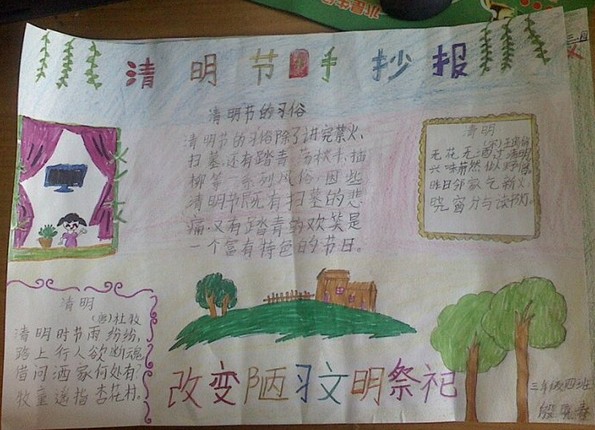 清明节手抄报
清明节的习俗
清明节的习俗除了讲究禁火、
扫墓,还有踏青、荡秋千、插
柳等一系列风俗,因些
清明节既有扫墓的悲
痛,又有踏青的欢笑是
一个富有特色的节日。
清明
无花无酒过清明
兴味萧然似野僧
昨日邻家乞新火
晓窗分与读书灯。
清明
(唐)杜牧
清明时节雨纷纷,
路上行人欲断魂
借问酒家何处有
牧童遥指杏花村。
改变陋习文明祭祀
三年级四班